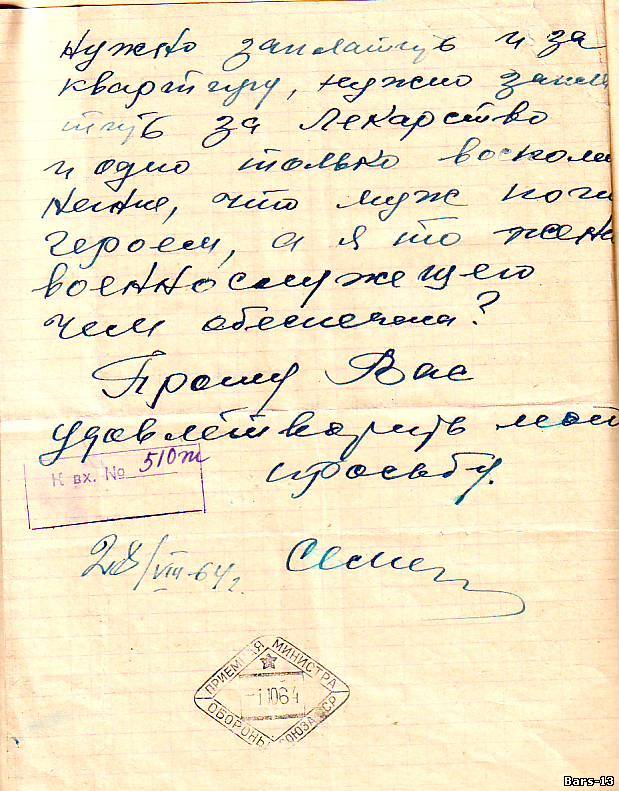 нужно заплатить и за
квартиру, нужно запла
тить за лекарство
и одно только воспоми
нание, что муж поги
героем, а я то жена
военнослужещего
чем обеспечена?
Прошу Вас
удовлетворить мою
просьбу.
К вх. № 510т
28/VIII-64 г.
ПРИЕМНАЯ МИНИСТРА
-1 10 64
ОБОРОНЫ СОЮЗА ССР
Bars-13